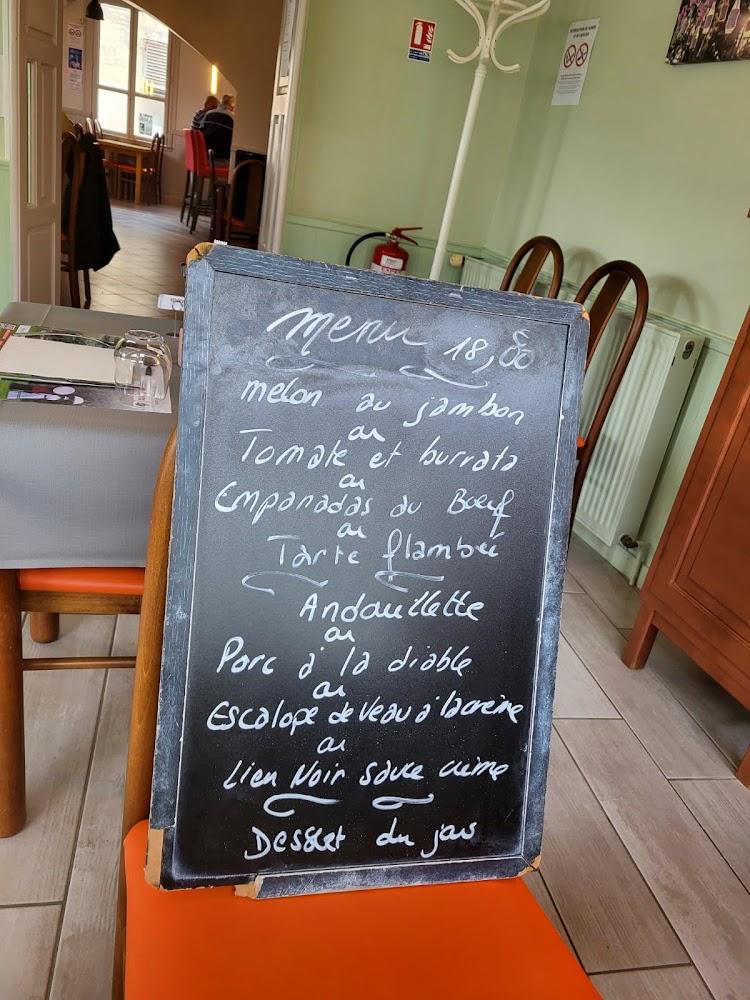 Menu 18,€00
melon au jambon
ou
Tomate et burrata
ou
Empanadas au Boeuf
ou
Tarte flambée
Andouillette
ou
Porc à la diable
ou
Escalope de Veau à la crème
ou
Lieu Noir sauce crème
Dessert du jour